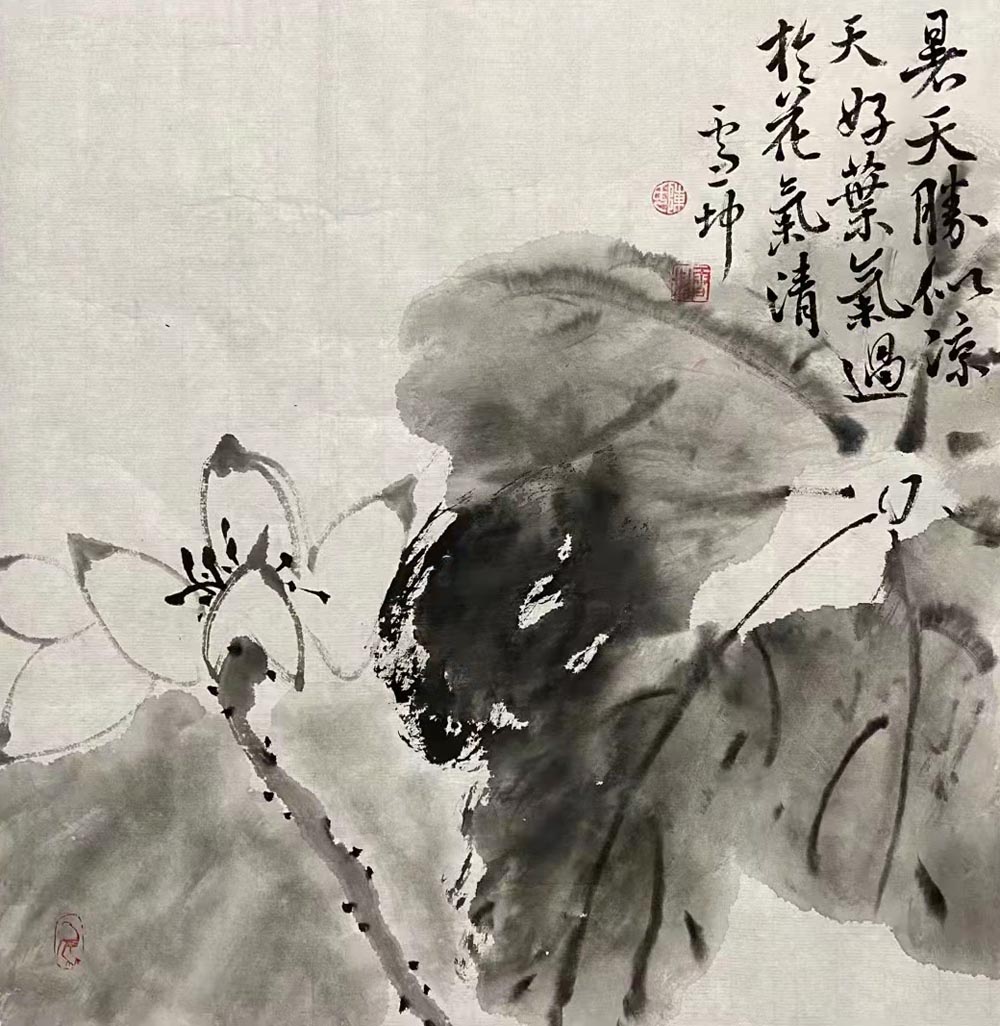 暑天勝似涼
天好葉氣過
於花氣清
雪坤